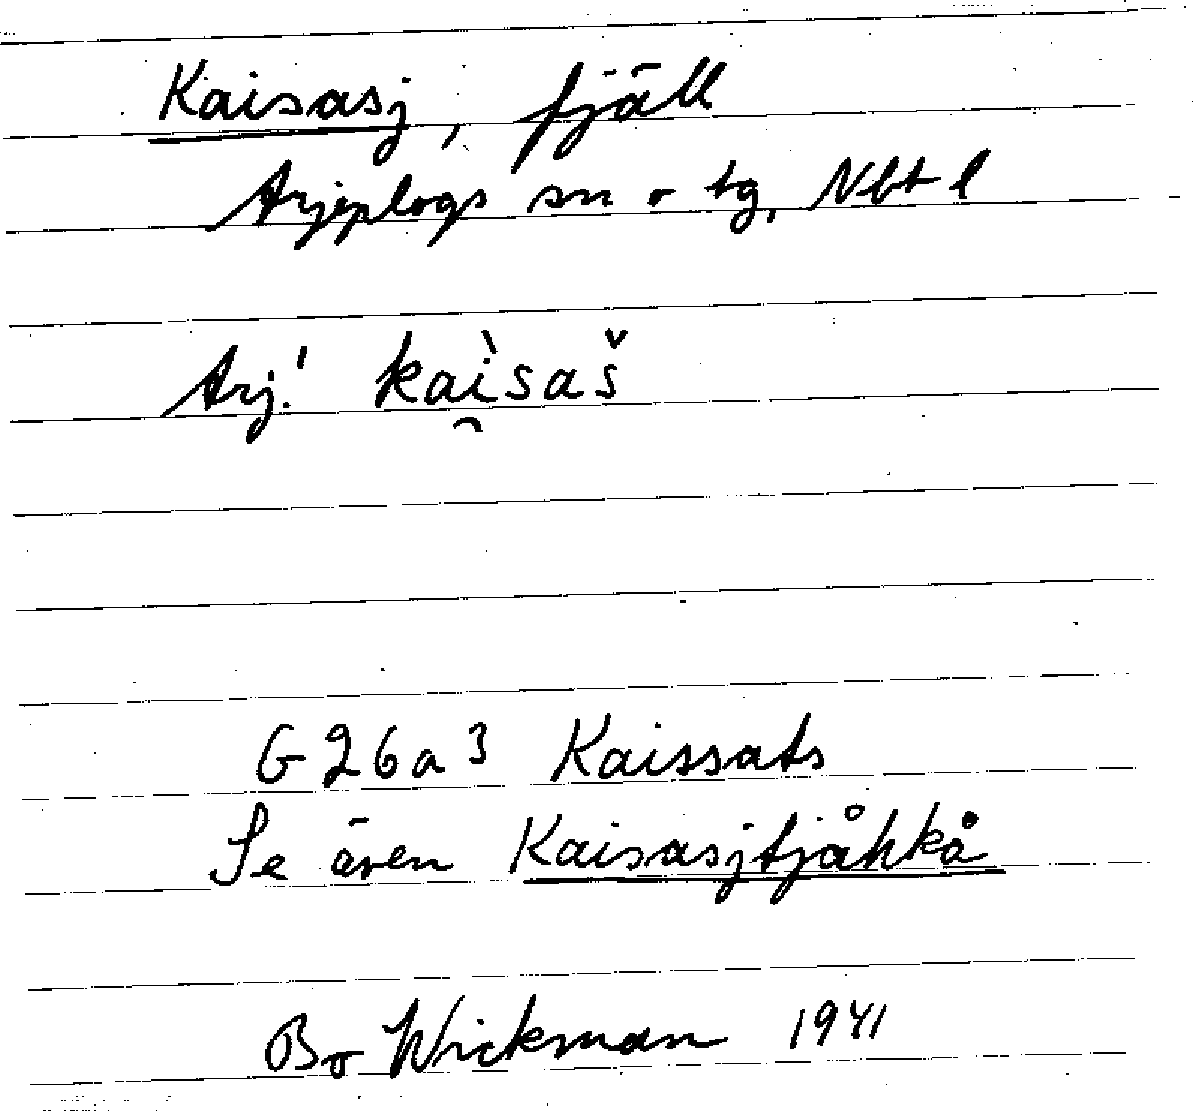 Kaisasj, fjäll
Arjeplogs sn o tg, Nbt l
Arj.' kaì̯saš
G26a3 Kaissats
Se även Kaisasjtjåhkå
Bo Wickman 1941